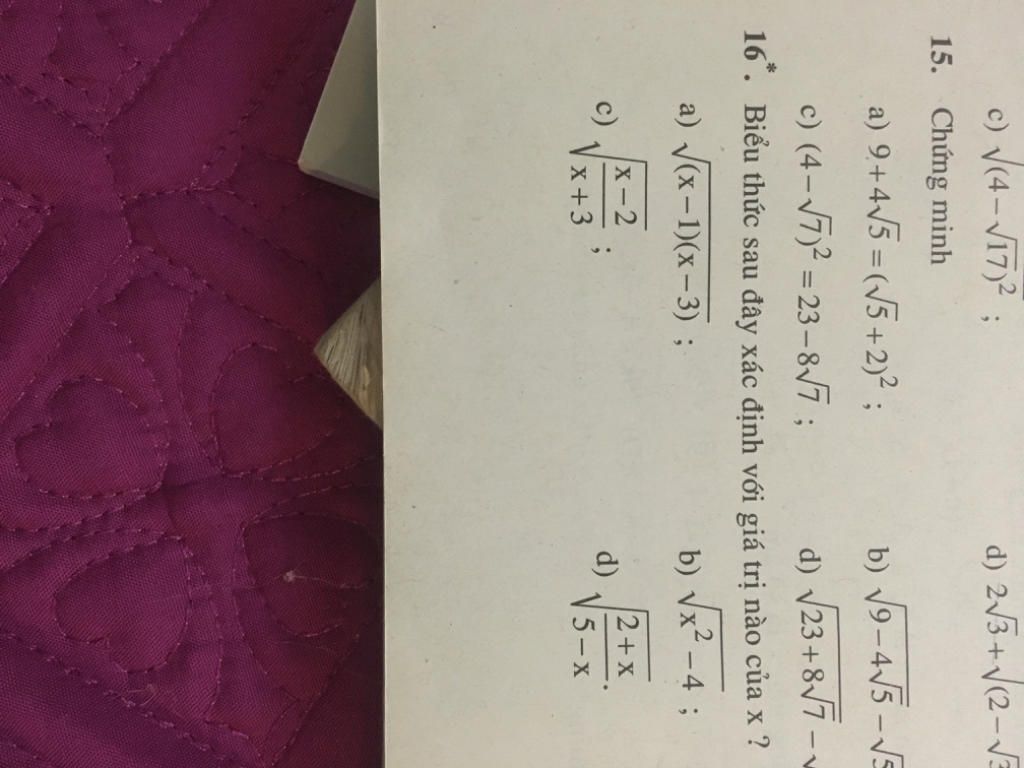 c) √(4 − √17)² ; d) 2√3 + √(2 − √3
15. Chứng minh
a) 9 + 4√5 = (√5 + 2)² ; b) √9 − 4√5 − √5
c) (4 − √7)² = 23 − 8√7 ; d) √23 + 8√7 − √
16*. Biểu thức sau đây xác định với giá trị nào của x ?
a) √(x − 1)(x − 3) ; b) √x² − 4 ;
c) √(x − 2)/(x + 3) ; d) √(2 + x)/(5 − x).